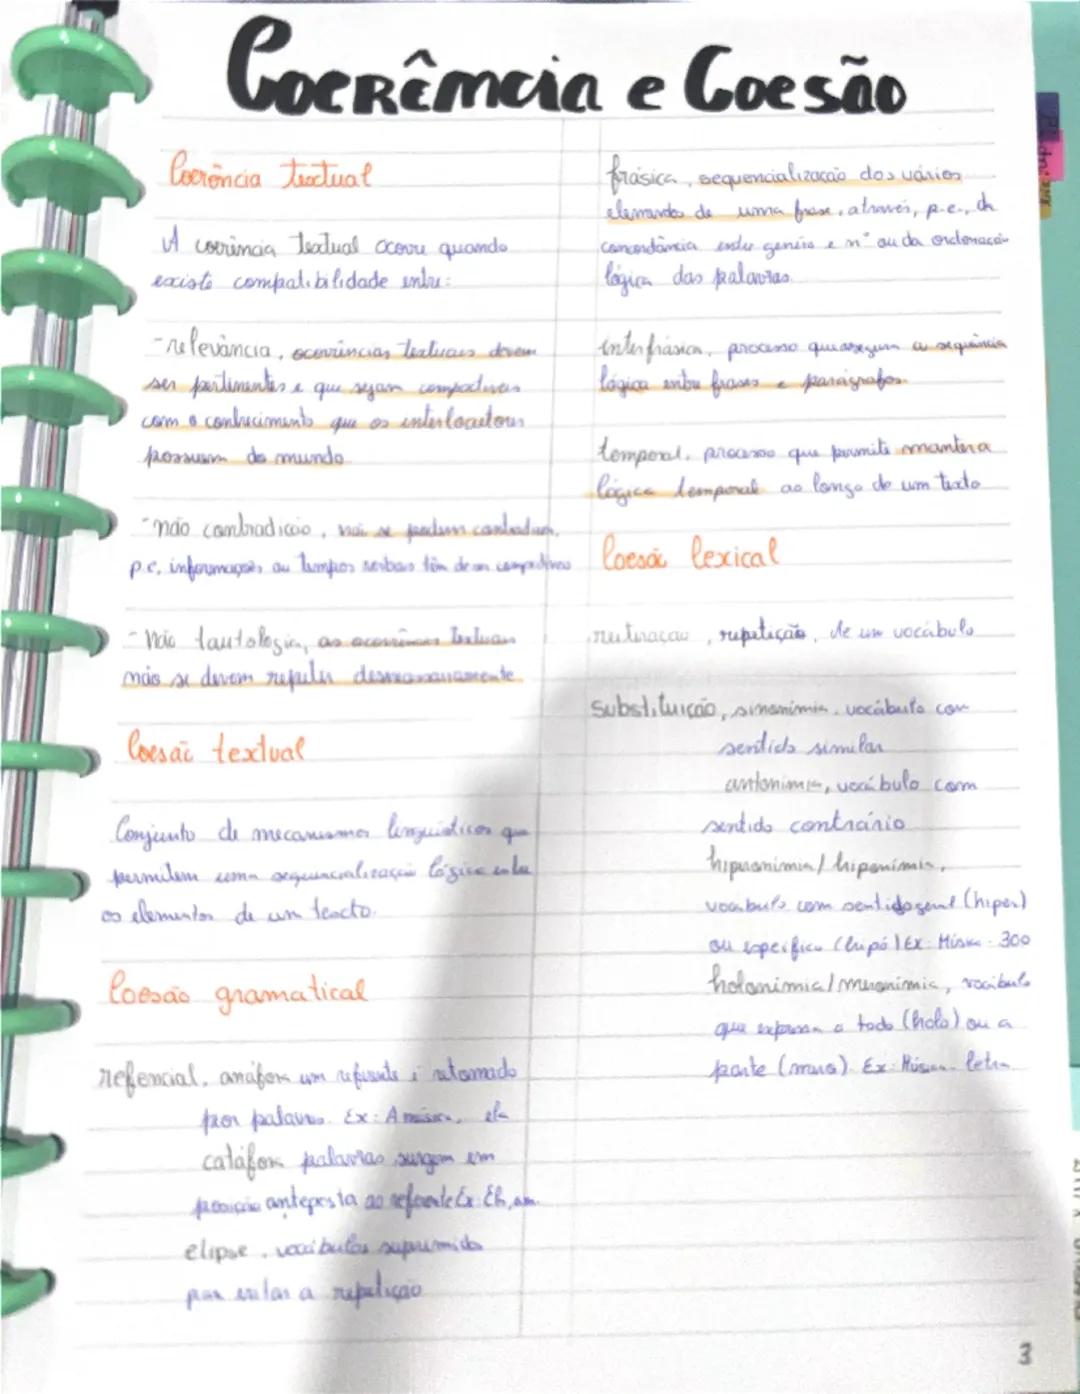 Coerência e Coesão
Coerência textual
A coerência textual ocorre quando
existe compatibilidade entre:
-relevância, ocorrências textuais devem
ser pertinentes e que sejam compatíveis
com o conhecimento que os interlocutores
possuem do mundo
-não contradição, não se podem contradizer,
p.e, informações ou tempos verbais têm de ser compatíveis
-Não tautologia, as ocorrências textuais
não se devem repetir desnecessariamente
Coesão textual
Conjunto de mecanismos linguísticos que
permitem uma sequencialização lógica entre
os elementos de um texto.
Coesão gramatical
refencial, anáfora um referente é retomado
por palavras. Ex: A música, ela
catáfora palavras surgem em
posição anteposta ao referente Ex:
elipse, vocábulos suprimidos
para evitar a repetição
frásica, sequencialização dos vários
elementos de uma frase, através, p.e., da
concordância entre género e nº ou da ordenação
lógica das palavras.
interfrásica, processo que assegura a sequência
lógica entre frases e parágrafos.
temporal, processo que permite manter a
lógica temporal ao longo de um texto
Coesão lexical
reiteração, repetição, de um vocábulo
substituição, sinonímia, vocábulo com
sentido similar
antonímia, vocábulo com
sentido contrário
hiperonímia/hiponímia,
vocábulo com sentido geral (hiper)
ou específico (hipó) Ex: Música - 300
holonímia/meronímia, vocábulo
que expressa o todo (holo) ou a
parte (mero). Ex: Música - letra
3